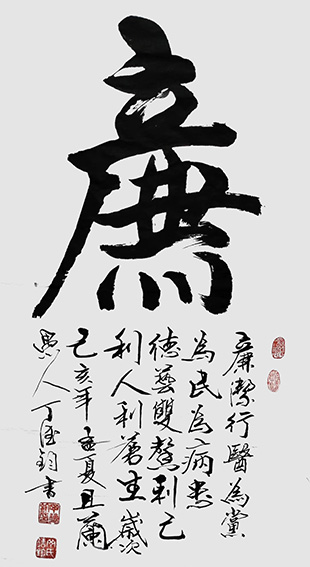 廉
廉潔行醫為黨
為民為病患
德藝雙馨利己
利人利蒼生歲次
己亥年孟夏且蘭
愚人丁 鈞書